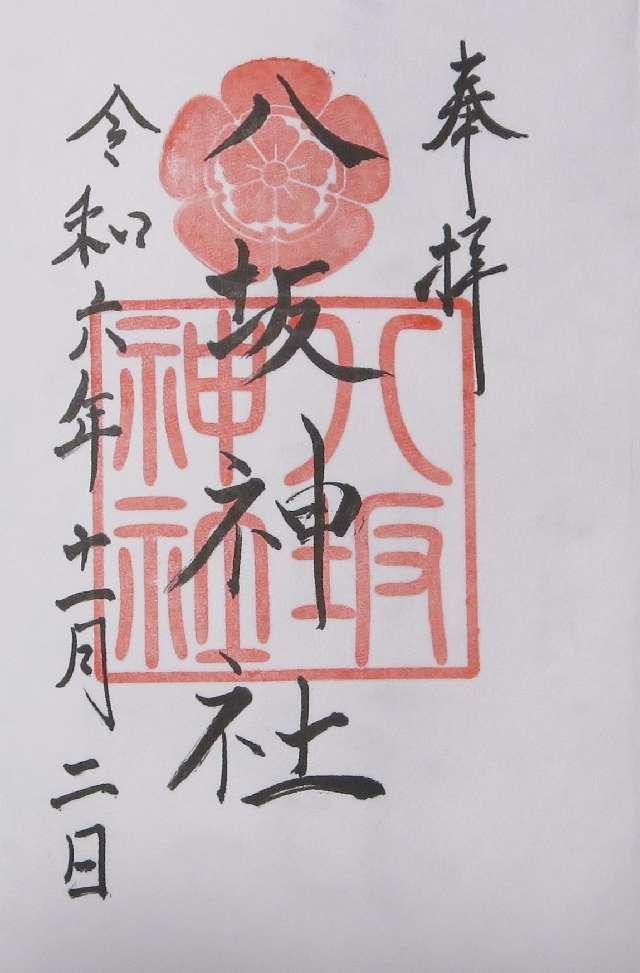 奉拝
八坂神社
八坂
神社
令和六年十一月二日